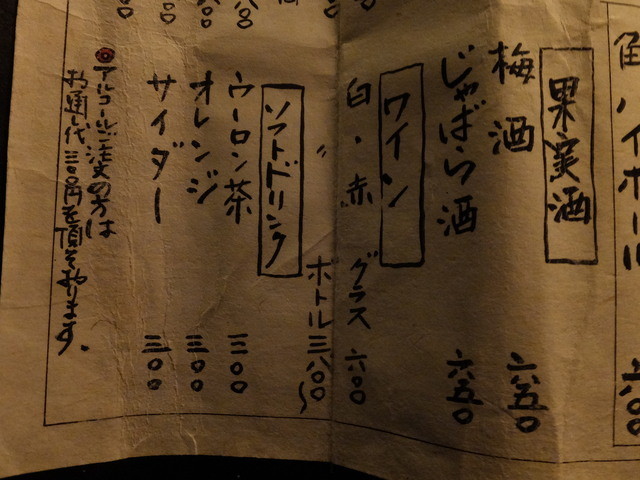 角ハイボール 六〇〇
果実酒
梅酒 六五〇
じゃばら酒 六五〇
ワイン
白・赤 グラス 六〇〇
〃 ボトル 三八〇〇～
ソフトドリンク
ウーロン茶 三〇〇
オレンジ 三〇〇
サイダー 三〇〇
◎アルコールご注文の方は
お通し代三〇〇円を頂いております。